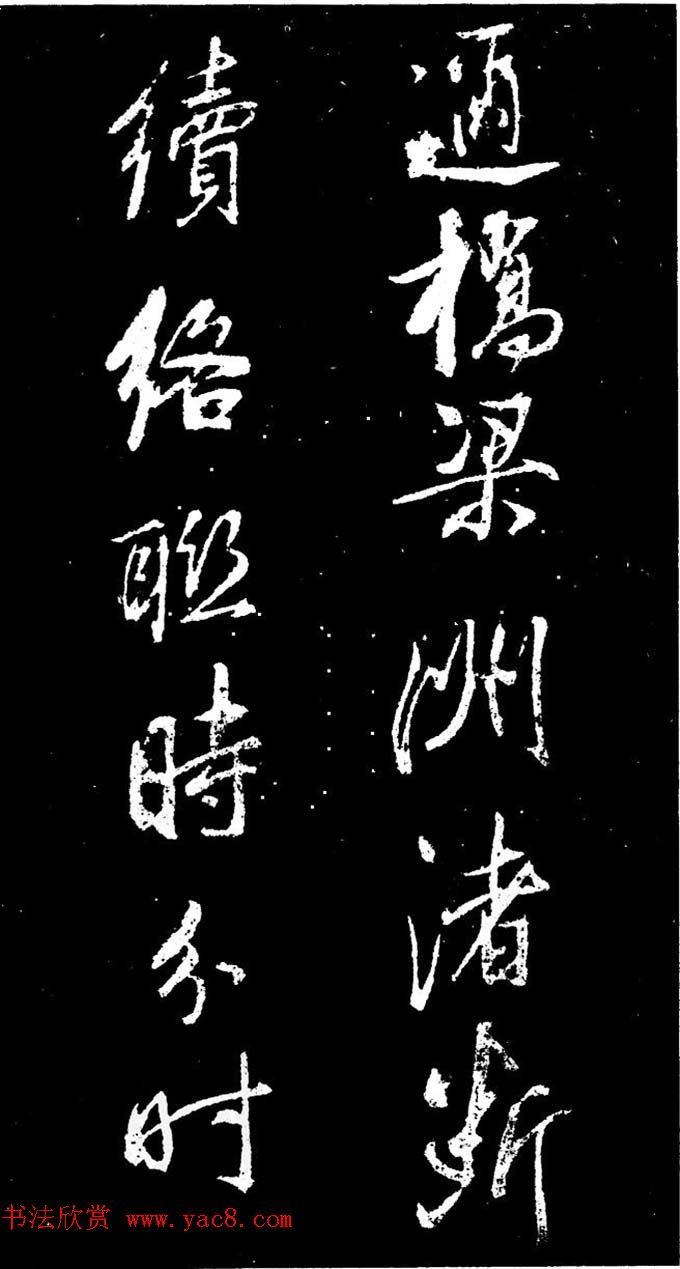 橋梁洲渚斷
續絡聯時分时
书法欣赏 www.yac8.com